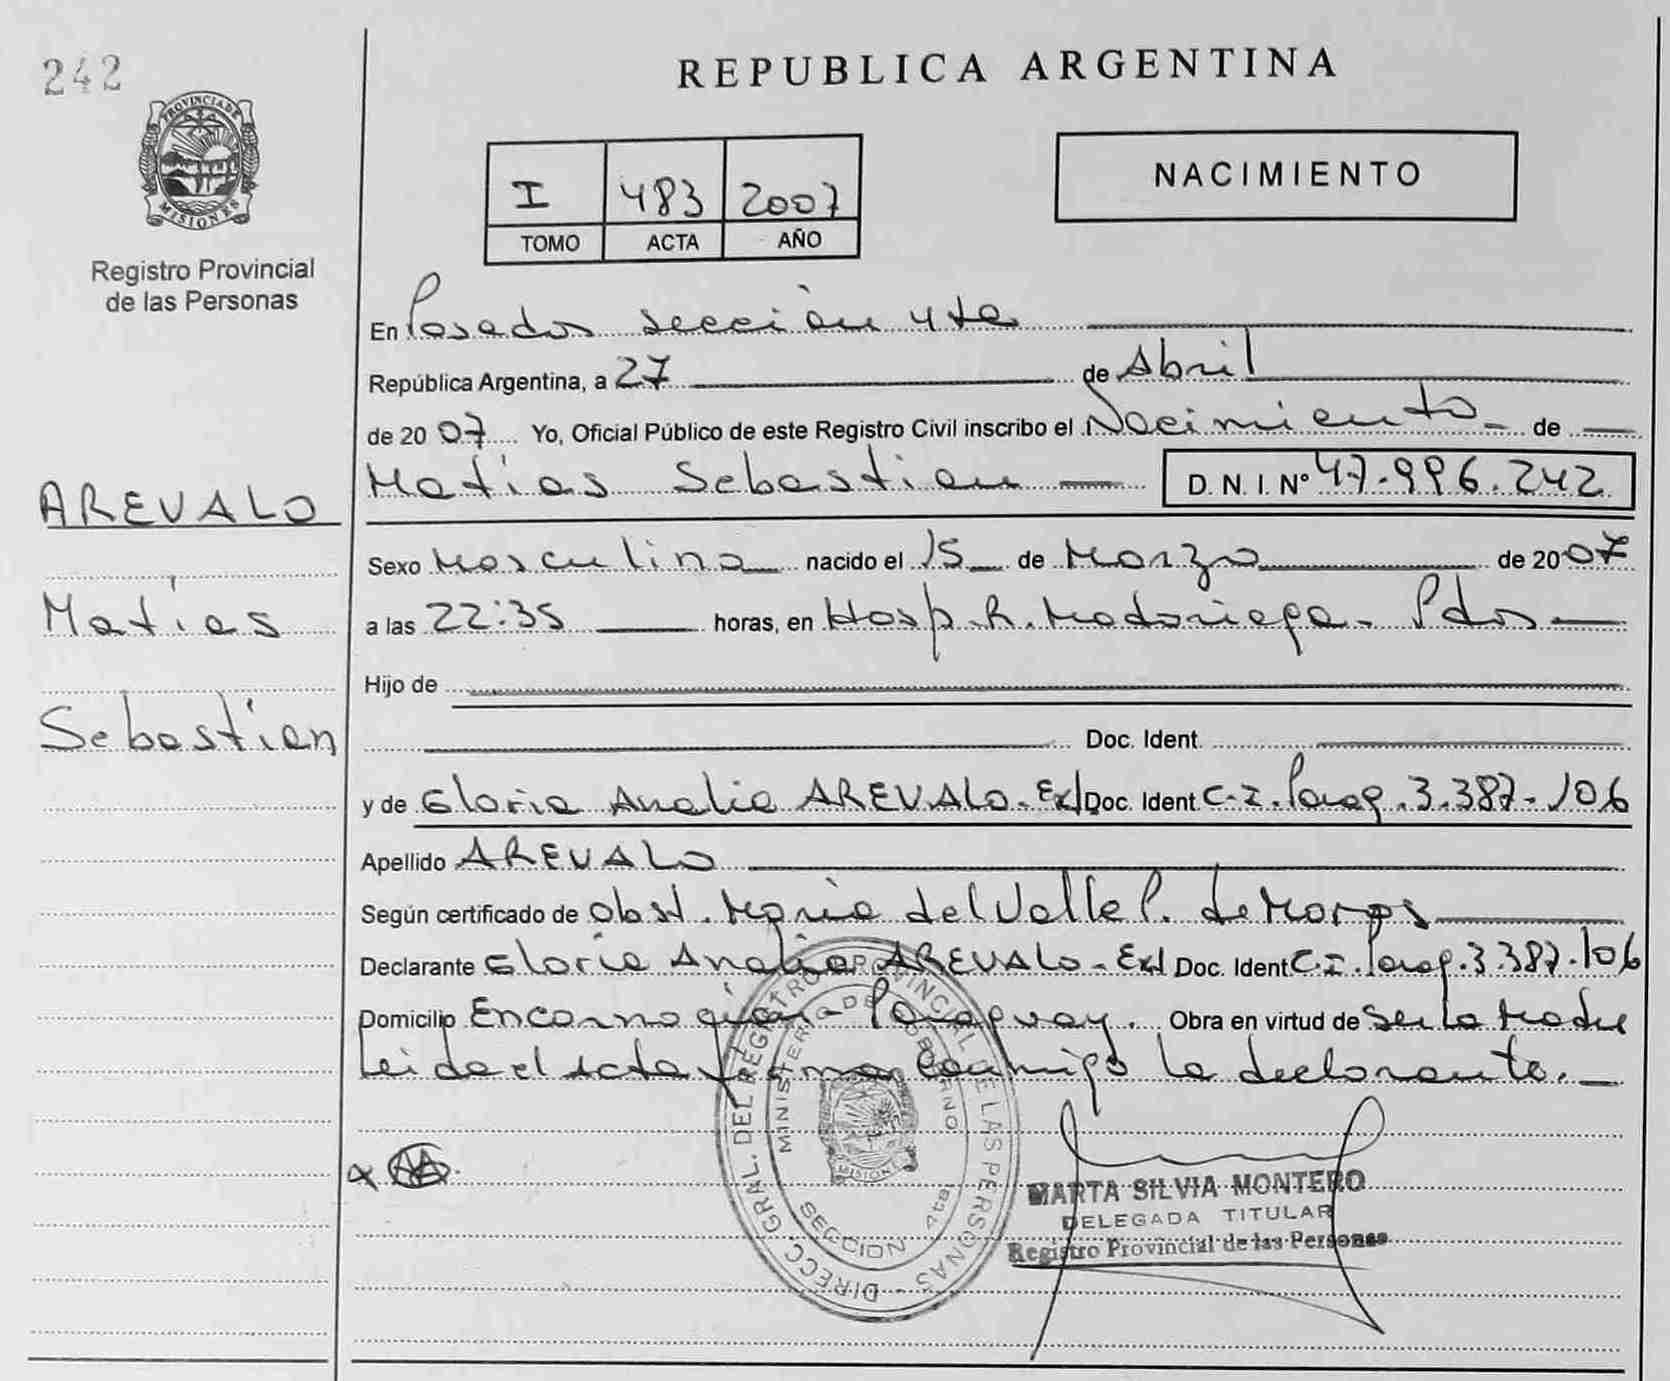 242
REPUBLICA ARGENTINA
PROVINCIA DE
MISIONES
Registro Provincial
de las Personas
I 483 2007
TOMO ACTA AÑO
NACIMIENTO
En Posadas sección 4ta
República Argentina, a 27 de Abril
de 2007 Yo, Oficial Público de este Registro Civil inscribo el Nacimiento de
Matías Sebastian D.N.I. Nº 47.996.242
AREVALO
Matias
Sebastian
Sexo Masculino nacido el 15 de Marzo de 2007
a las 22:35 horas, en Hosp. R. Madariaga. Pdas
Hijo de
Doc. Ident.
y de Gloria Analia AREVALO. Ext Doc. Ident C.I. Parag. 3.387.106
Apellido AREVALO
Según certificado de Obst. Maria del Valle P. de
Declarante Gloria Analia AREVALO. Ext Doc. Ident C.I. Parag. 3.387.106
Domicilio Encarnación Paraguay. Obra en virtud de ser la madre
Leida el acta firma conmigo la declarante.
DIRECC GRAL. DEL REGISTRO PROVINCIAL DE LAS PERSONAS
MINISTERIO DE GOBIERNO
MISIONES
SECCION 4ta
MARTA SILVIA MONTERO
DELEGADA TITULAR
Registro Provincial de las Personas